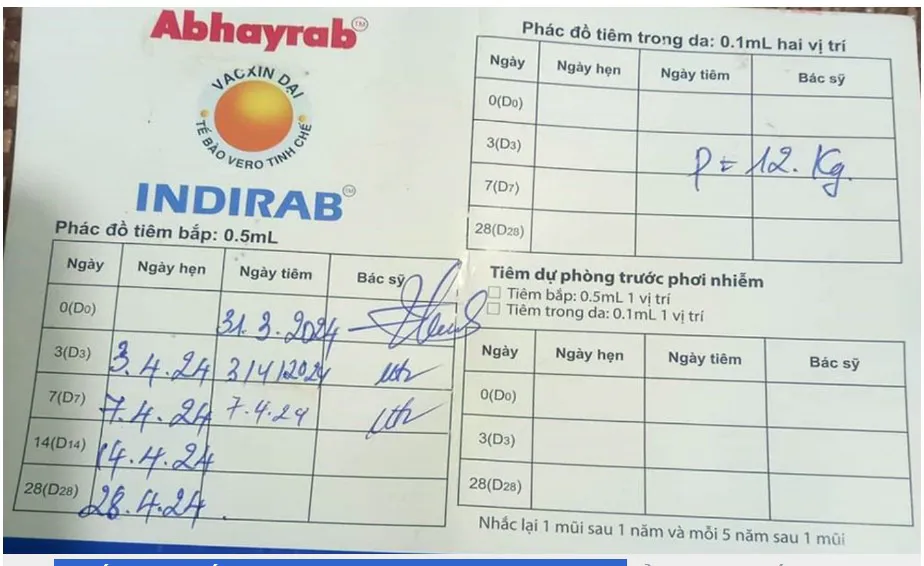 Abhayrab™
VACXIN DẠI
TẾ BÀO VERO TINH CHẾ
INDIRAB™
Phác đồ tiêm bắp: 0.5mL
Ngày Ngày hẹn Ngày tiêm Bác sỹ
0(D0) 31.3.2024
3(D3) 3.4.24 3/4/2024
7(D7) 7.4.24 7.4.24
14(D14) 14.4.24
28(D28) 28.4.24.
Phác đồ tiêm trong da: 0.1mL hai vị trí
Ngày Ngày hẹn Ngày tiêm Bác sỹ
0(D0)
3(D3)
P = 12. Kg.
7(D7)
28(D28)
Tiêm dự phòng trước phơi nhiễm
Tiêm bắp: 0.5mL 1 vị trí
Tiêm trong da: 0.1mL 1 vị trí
Ngày Ngày hẹn Ngày tiêm Bác sỹ
0(D0)
3(D3)
28(D28)
Nhắc lại 1 mũi sau 1 năm và mỗi 5 năm sau 1 mũi